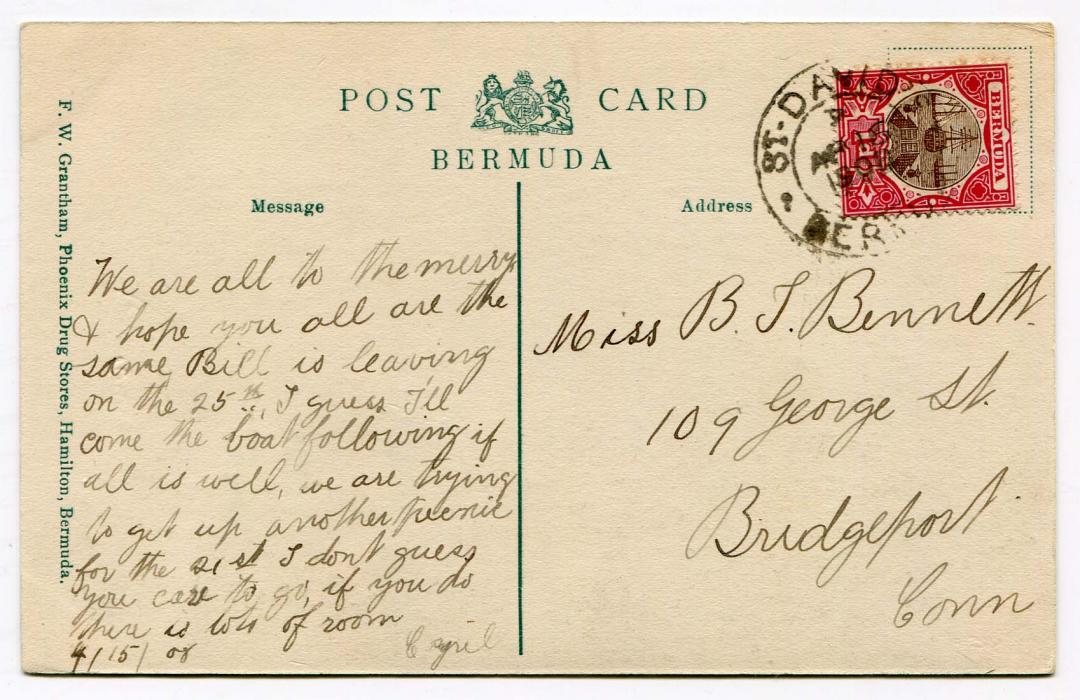 POST CARD
BERMUDA
Message
Address
F. W. Grantham, Phoenix Drug Stores, Hamilton, Bermuda.
ST. DAVID
AP 15
BERMUDA
We are all to the merry
& hope you all are the
same Bill is leaving
on the 25th, I guess I'll
come the boat following if
all is well, we are trying
to get up another picnic
for the 21st I dont guess
you care to go, if you do
there is lots of room
4/15/08 Cyril
Miss B. J. Bennett.
109 George St.
Bridgeport.
Conn